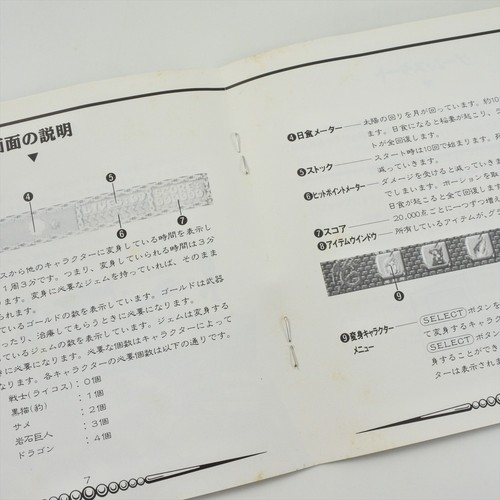 画面の説明
▼
④
⑤
⑥
⑦
スから他のキャラクターに変身している時間を表示し
1周3分です。つまり、変身していられる時間は3分
ます。変身に必要なジェムを持っていれば、そのまま
られます。
ているゴールドの数を表示しています。ゴールドは武器
ったり、治療してもらうときに必要になります。
しているジェムの数を表示しています。ジェムは変身する
きに必要になります。必要な個数はキャラクターによって
なります。各キャラクターの必要個数は以下の通りです。
戦士(ライコス):0個
黒猫(豹):1個
サメ:2個
岩石巨人:3個
ドラゴン:4個
7
④日食メーター 太陽の回りを月が回っています。約10
ます。日食になると稲妻が起こり、
トが全回復します。
⑤ストック スタート時は10回で始まります。
減っていきます。
⑥ヒットポイントメーター ダメージを受けると減っていき
でしまいます。ポーションを取
日食が起こると全て回復します
⑦スコア 20,000点ごとに一つずつ増え
⑧アイテムウインドウ 所有しているアイテムが、グ
⑨
⑨変身キャラクター SELECTボタンを
メニュー て変身するキャラク
SELECTボタン
身することができ
ターは表示されま